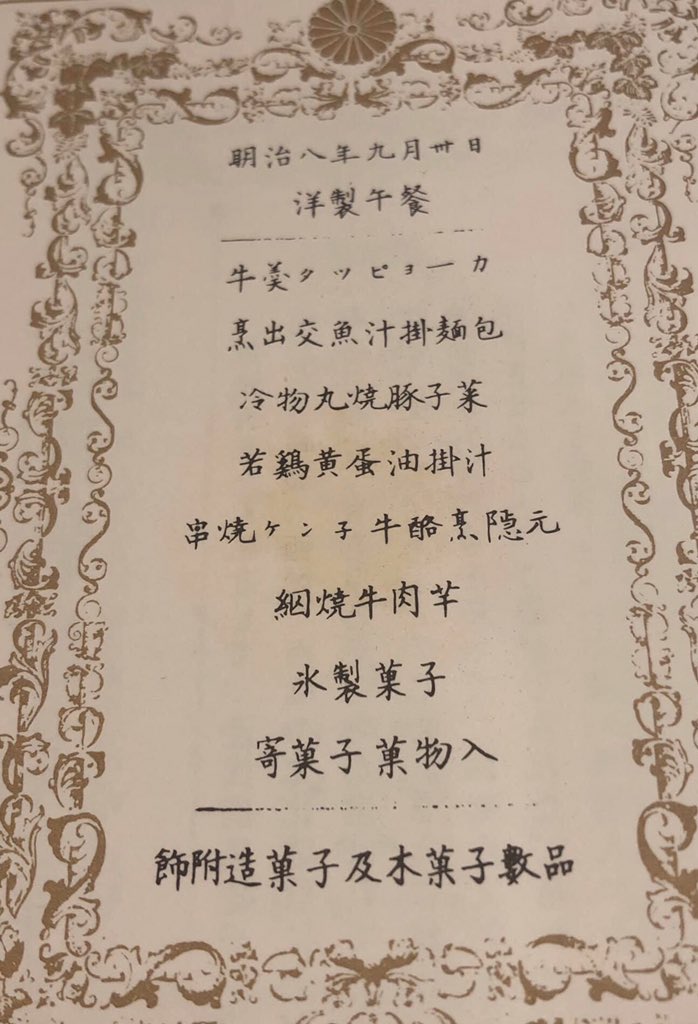 明治八年九月卅日
洋製午餐
牛羹タツピョーカ
烹出交魚汁掛麺包
冷物丸焼豚子菜
若鷄黄蛋油掛汁
串焼ケン子牛酪烹隠元
網焼牛肉芋
氷製菓子
寄菓子菓物入
飾附造菓子及木菓子數品